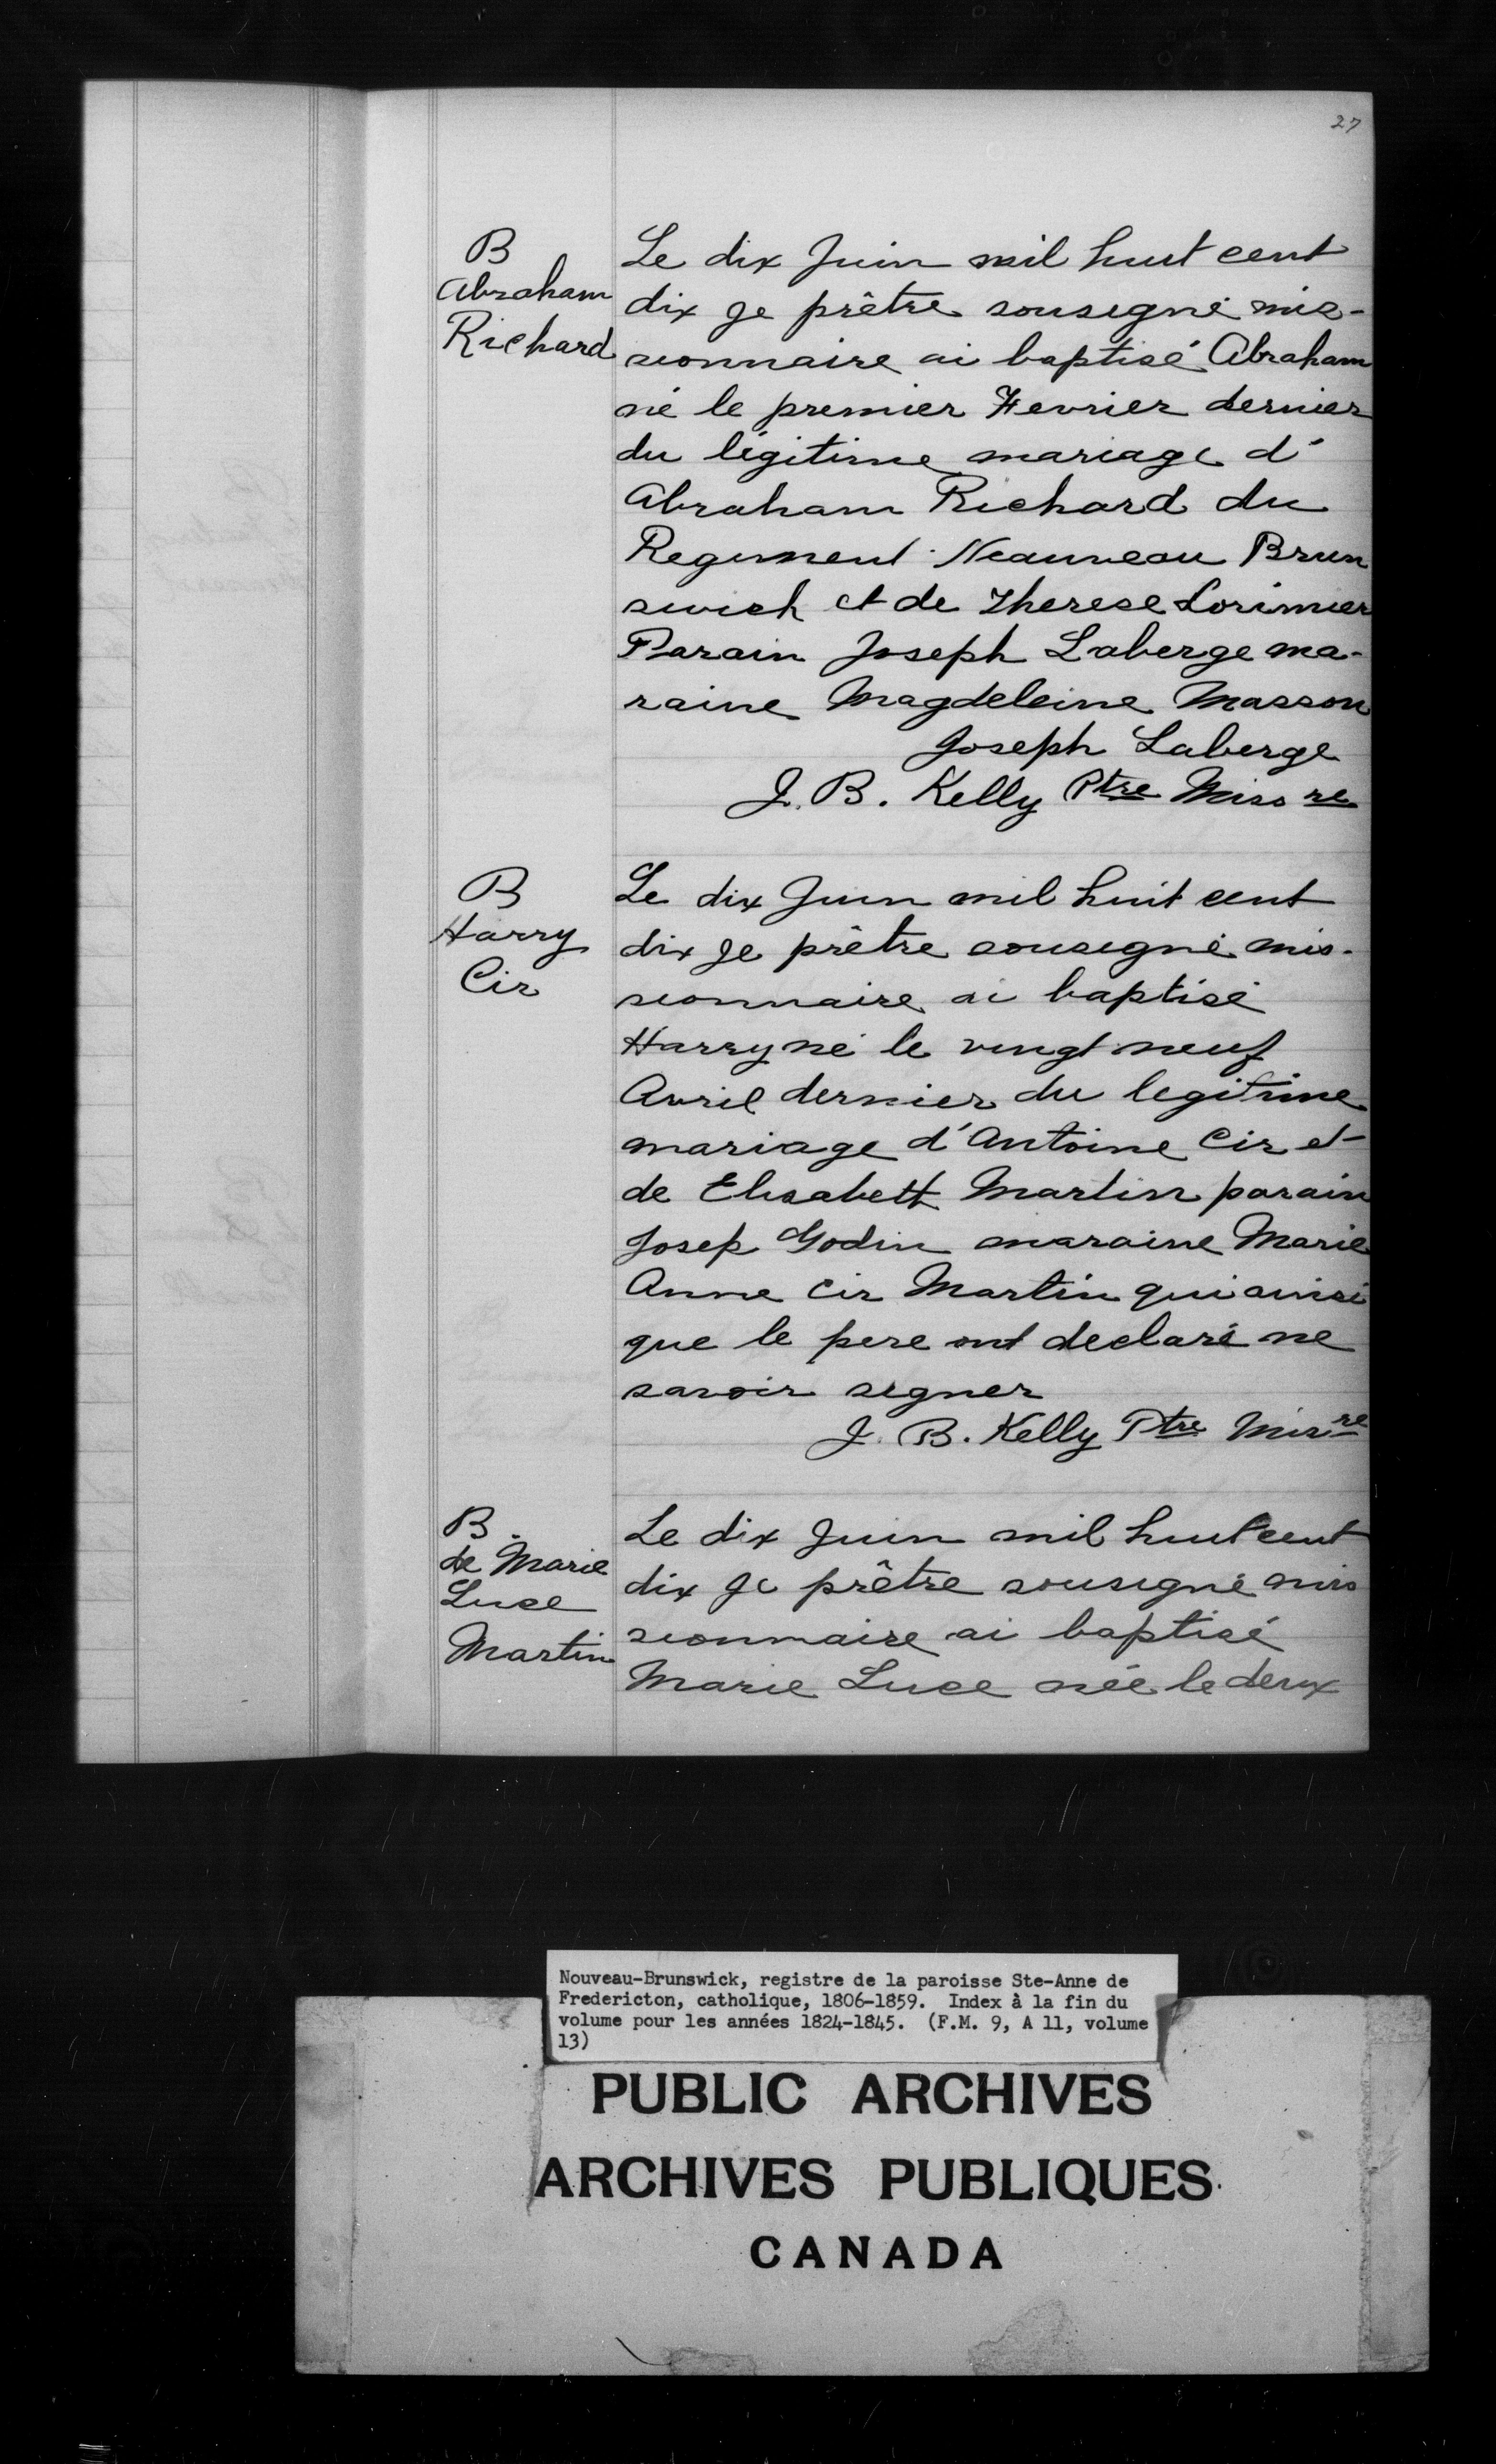 27
B
Abraham
Richard
Le dix Juin mil huit cent
dix Je prêtre sousigné mis-
sionnaire ai baptisé Abraham
né le premier Fevrier dernier
du légitime mariage d'
Abraham Richard du
Regiment Neauveau Brun
swich et de Therese Lorimier
Parain Joseph Laberge ma-
raine Magdeleine Masson
Joseph Laberge
J. B. Kelly Ptre Miss re
B
Harry
Cir
Le dix Juin mil huit cent
dix Je prêtre sousigné mis-
sionnaire ai baptisé
Harry né le vingt neuf
Avril dernier du legitime
mariage d'Antoine Cir et
de Elisabett Martin parain
Josep Godin maraine Marie
Anne Cir Martin qui ainsi
que le pere ont declaré ne
savoir signer
J. B. Kelly Ptre Miss re
B.
de Marie
Luce
Martin
Le dix Juin mil huit cent
dix Je prêtre sousigné mis
sionnaire ai baptisé
Marie Luce née le deux
Nouveau-Brunswick, registre de la paroisse Ste-Anne de
Fredericton, catholique, 1806-1859. Index à la fin du
volume pour les années 1824-1845. (F.M. 9, A 11, volume
13)
PUBLIC ARCHIVES
ARCHIVES PUBLIQUES
CANADA